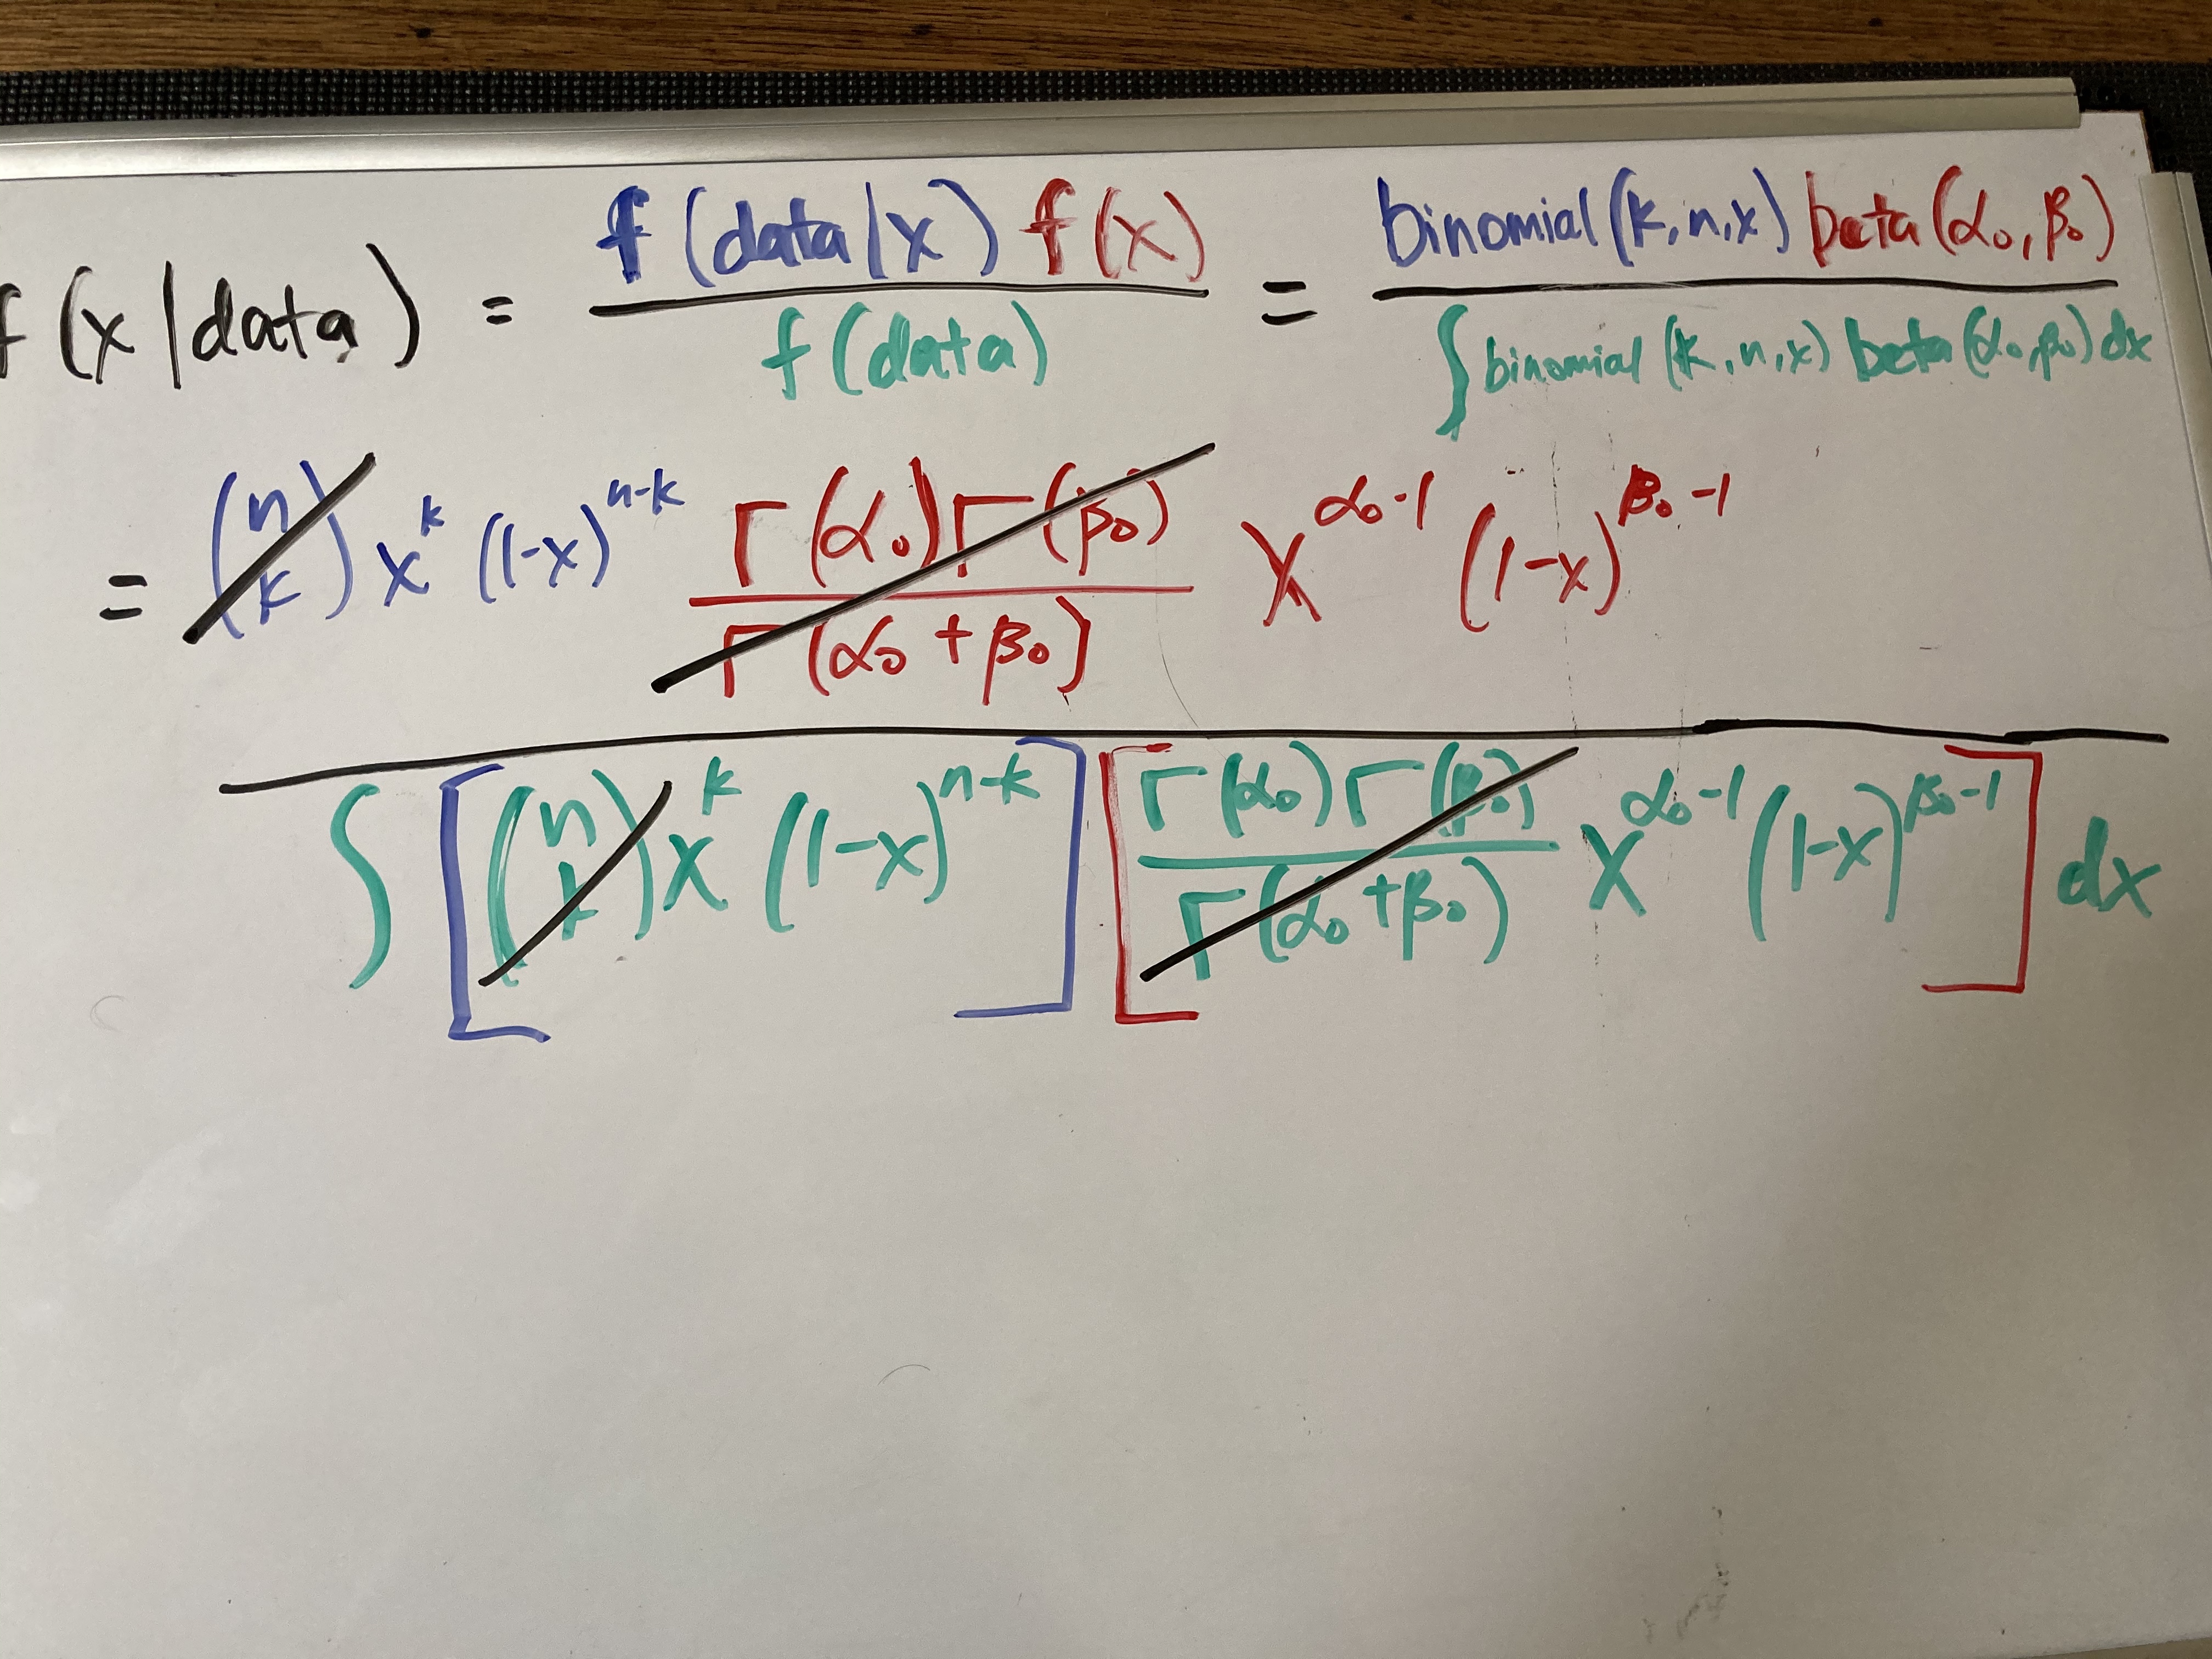 f(x|data) = f(data|x) f(x) / f(data) = binomial(k,n,x) beta(α₀,β₀) / ∫ binomial(k,n,x) beta(α₀,β₀) dx
= (n k) x^k (1-x)^(n-k) Γ(α₀)Γ(β₀) / Γ(α₀+β₀) x^(α₀-1) (1-x)^(β₀-1)
∫ [(n k) x^k (1-x)^(n-k)] [Γ(α₀)Γ(β₀) / Γ(α₀+β₀) x^(α₀-1) (1-x)^(β₀-1)] dx